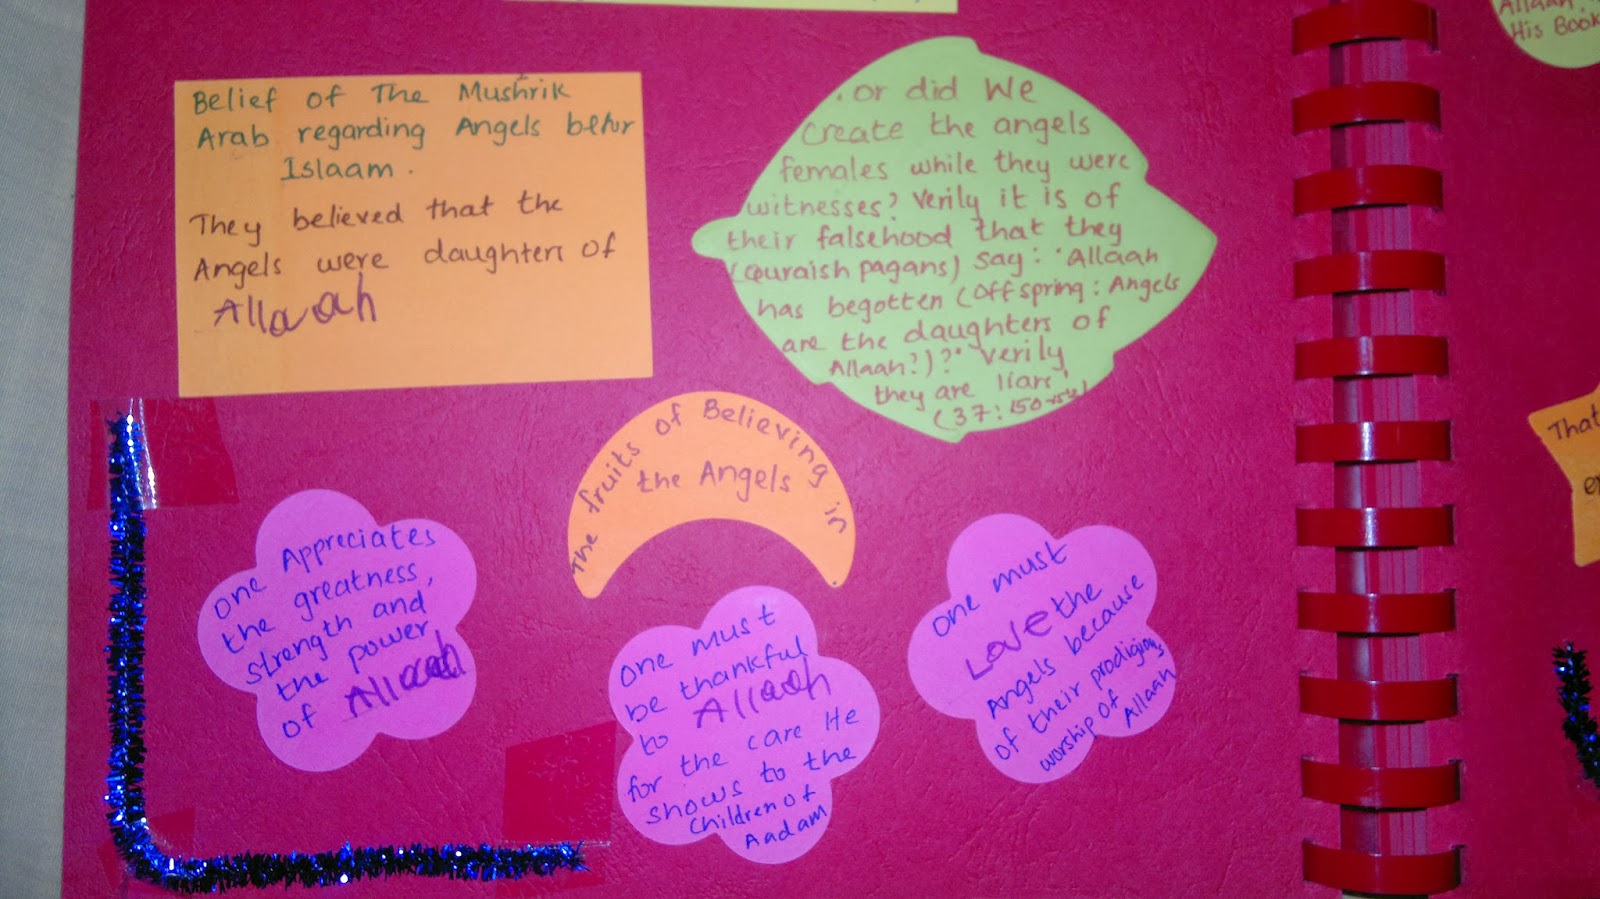 Belief of The Mushrik
Arab regarding Angels befur
Islaam.
They believed that the
Angels were daughters of
Allaah
. or did We
Create the angels
females while they were
witnesses? Verily it is of
their falsehood that they
(Quraish pagans) say: "Allaah
has begotten (Offspring: Angels
are the daughters of
Allaah?)?" Verily
they are liars'
(37:150-
The fruits of Believing in
the Angels
One Appreciates
the greatness,
strength and
the power
of Allaah
One must
be thankful
to Allaah
for the care He
shows to the
Children of
Aadam
One must
LOVE the
Angels because
of their prodigious
worship of
Allaah
Allaah
His Book
That